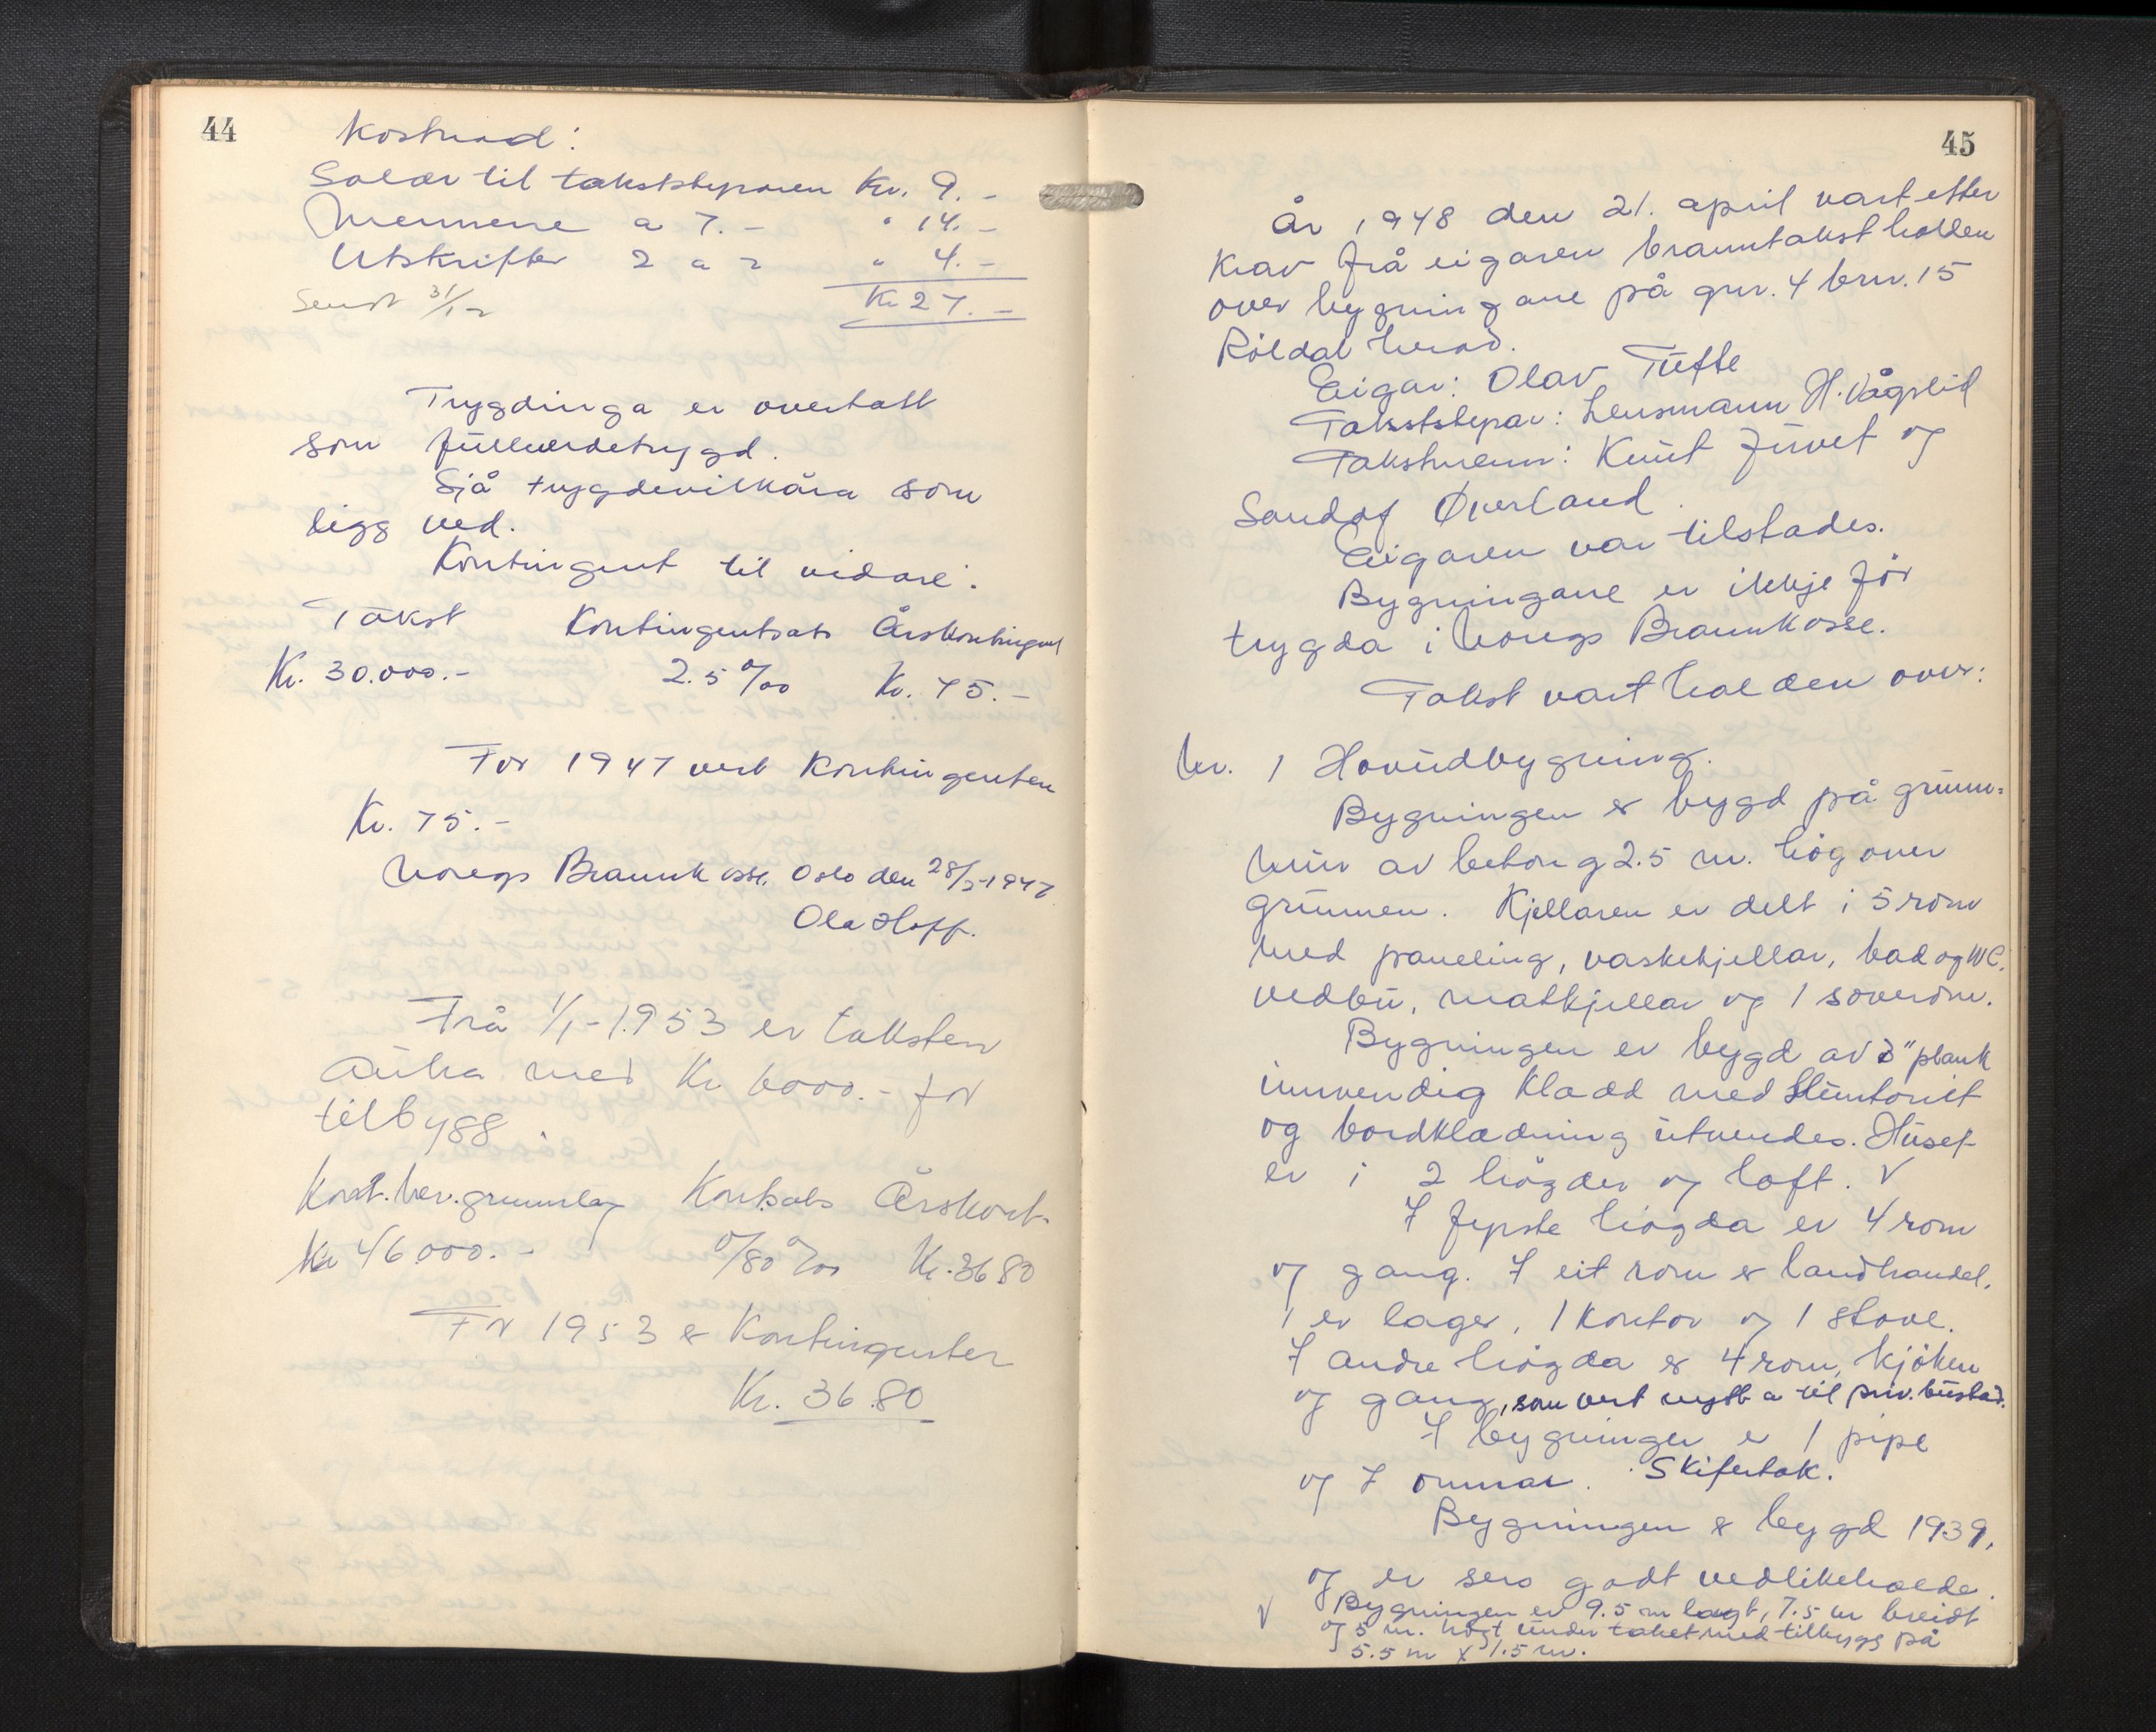 44
Kostnad:
Salær til takststyraren Kr. 9.-
Mennene a 7.- " 14.-
Utskrifter 2 a 2 " 4.-
Kr 27.-
Sendt 31/12
Trygdinga er overtatt
som fullverdetrygd.
Sjå trygdevilkåra som
ligg ved.
Kontingent til vidare:
Takst Kontingentsats Årskontingent
Kr. 30.000.- 2.5 o/oo Kr. 75.-
For 1947 vert Kontingenten
Kr. 75.-
Noregs Brannkasse, Oslo den 28/2-1947
Ola Hoff.
Frå 1/1-1953 er taksten
auka med Kr 6000.- for
tilbygg.
Kont.ber.grunnlag Kontsats Årskont.
Kr 46.000.- 0/80 o/oo Kr. 36 80
For 1953 er Kontingenten
Kr. 36.80
45
År 1948 den 21. april vart etter
Krav frå eigaren branntakst halden
over bygningane på gnr. 4 bnr. 15
Röldal herad.
Eigar: Olav Tufte
Takststyrar: Lensmann H. Vågslid
Takstmenn: Knut Juvet og
Sandof Överland.
Eigaren var tilstades.
Bygningane er ikkje för
trygda i Noregs Brannkasse.
Takst vart halden over:
Nr. 1 Hovudbygning.
Bygningen er bygd på grunn=
mur av betong 2.5 m. hög over
grunnen. Kjellaren er delt i 5 rom
med paneling, vaskekjellar, bad og WC.
vedbu, matkjellar og 1 soverom.
Bygningen er bygd av 3" plank
innvendig kladd med Huntonit
og bordklædning utvendes. Huset
er i 2 högder og loft. V
I fyrste högda er 4 rom
og gang. I eit rom er landhandel,
1 er lager, 1 Kontor og 1 stove.
I andre högda er 4 rom, kjöken
og gang, som vert nytta til priv. bustad.
I bygningen er 1 pipe
og 7 omnar. Skifertak.
Bygningen er bygd 1939,
og er sers godt vedlikehalde.
V Bygningen er 9.5 m langt, 7.5 m breidt
og 5 m. högt under taket med tilbygg på
5.5 m x 1.5 m.